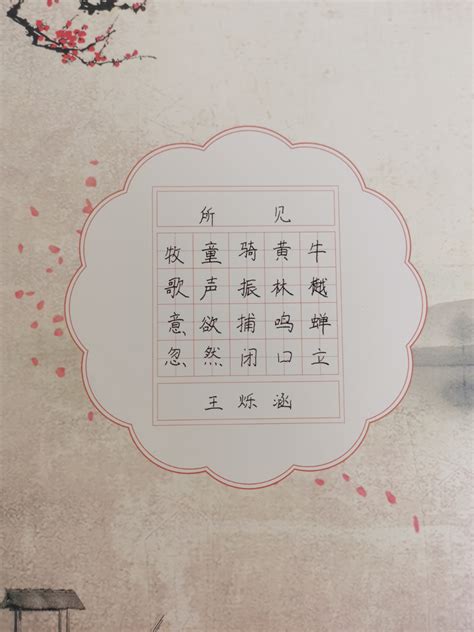 所见
牧童骑黄牛
歌声振林樾
意欲捕鸣蝉
忽然闭口立
王烁涵